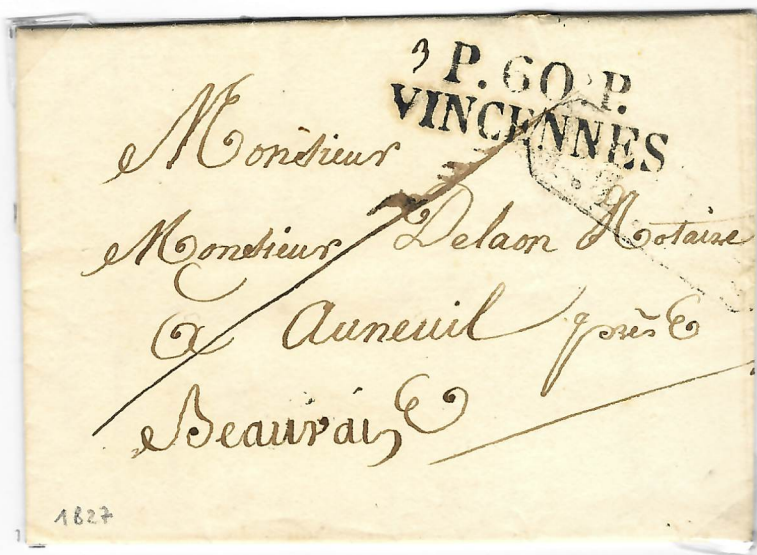 3
P. 60. P.
VINCENNES
Monsieur
Monsieur Delaon Notaire
a Auneuil près
Beauvais
1827